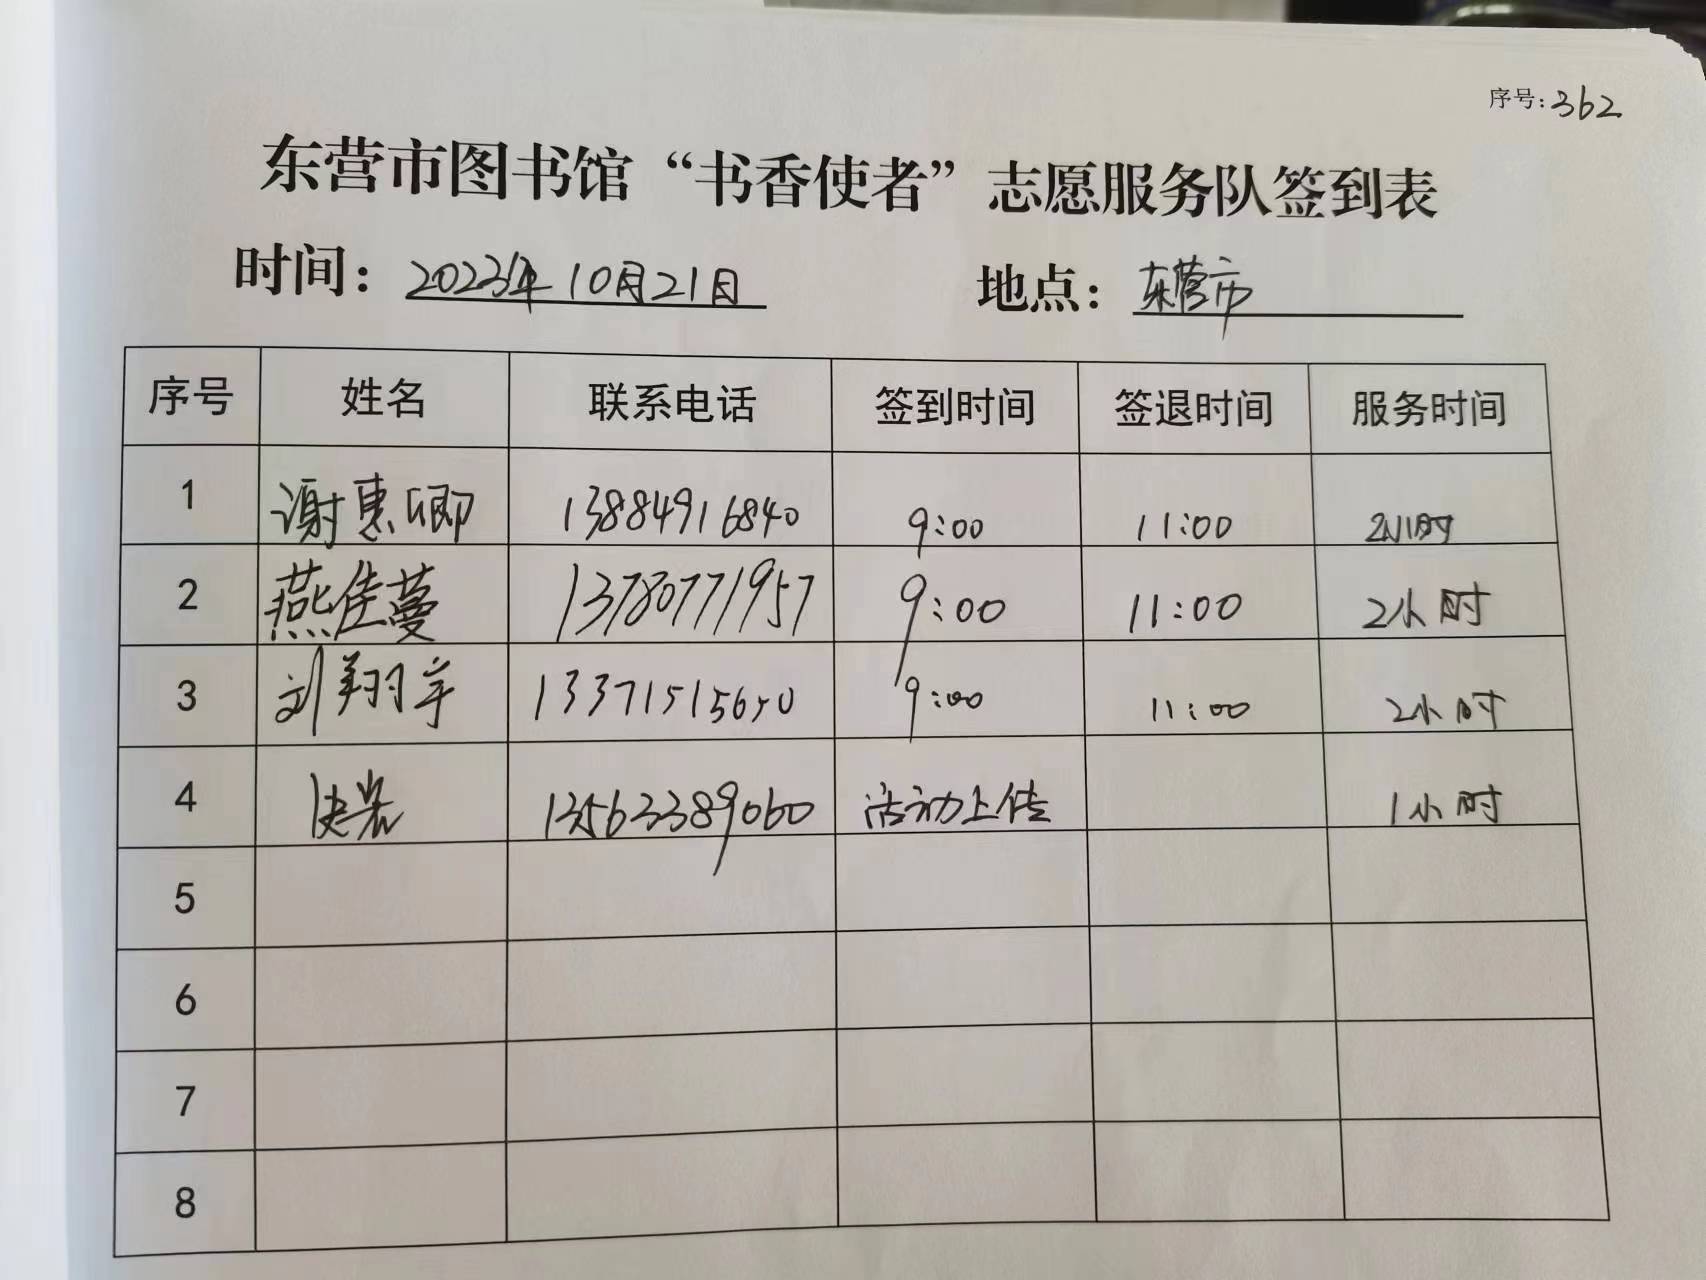 序号：362
东营市图书馆“书香使者”志愿服务队签到表
时间：2023年10月21日 地点：东营市
序号 姓名 联系电话 签到时间 签退时间 服务时间
1 谢惠卿 13884916840 9:00 11:00 2小时
2 燕佳蔓 13780771957 9:00 11:00 2小时
3 刘翔宇 13371515650 9:00 11:00 2小时
4 13563389060 活动上传 1小时
5
6
7
8